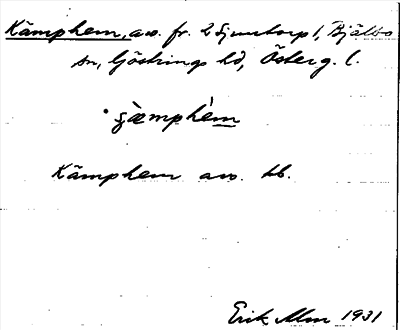 Kämphem, avs. fr. 2 Djurtorp 1, Bjälbo
sn, Göstrings hd, Österg. l.
Kämphem avs. Hb.
Erik Alm 1931